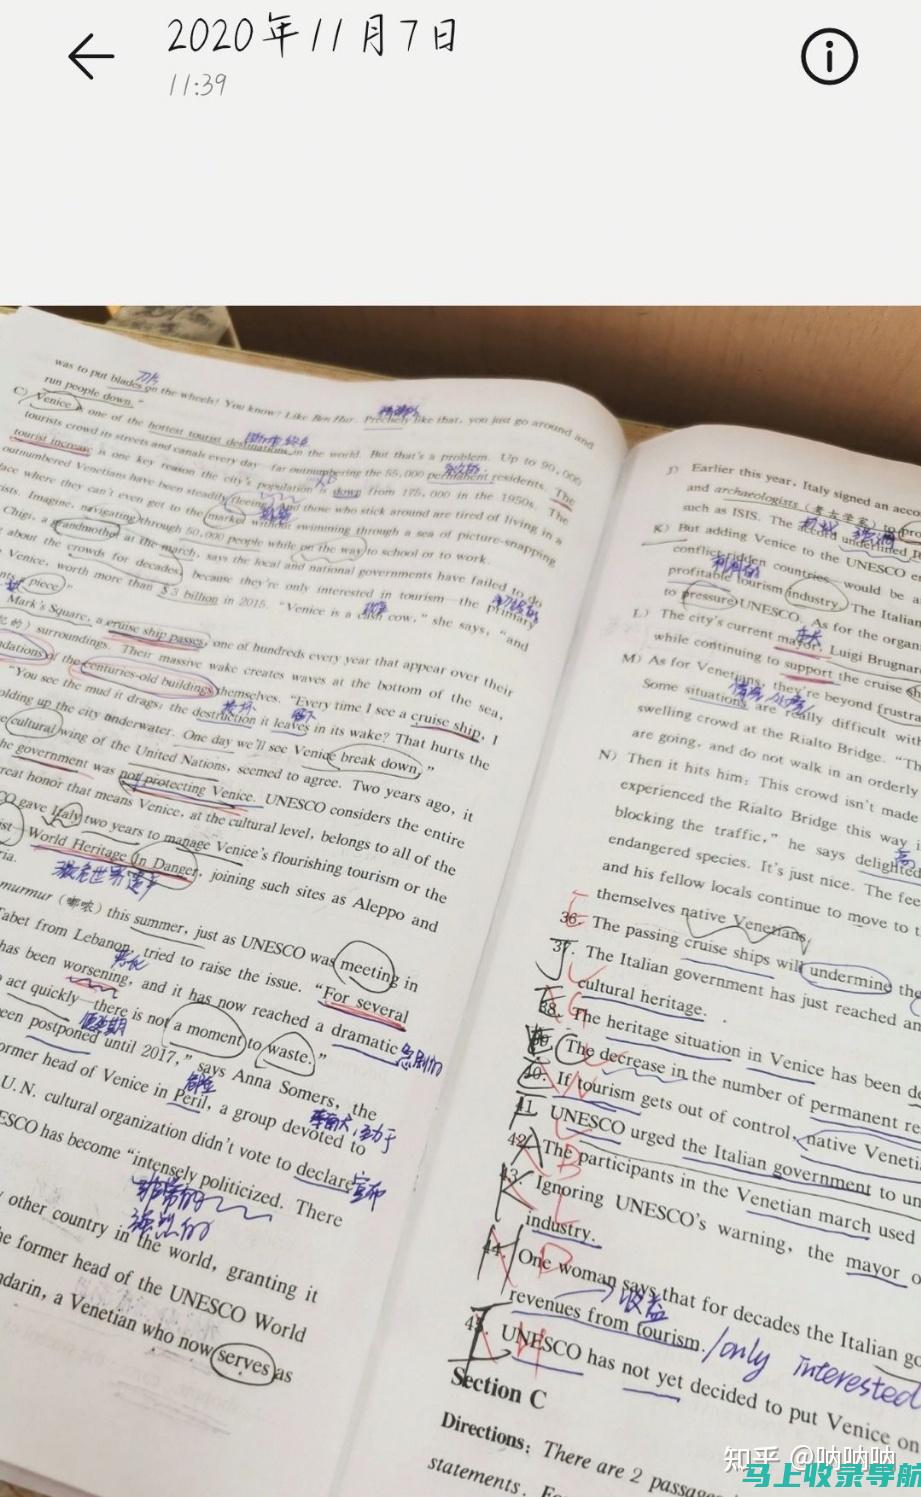 2020年11月7日
11:39
was to put blades on the wheels? You know? Like Ben Hur. Precisely like that, you just go around and
刀片
run people down."
C) Venice is one of the hottest tourist destinations in the world. But that's a problem. Up to 90,000
tourists crowd its streets and canals every day—far outnumbering the 55,000 permanent residents. The
tourist increase is one key reason the city's population is down from 175,000 in the 1950s. The
outnumbered Venetians have been steadily fleeing. And those who stick around are tired of living in a
lace where they can't even get to the market without swimming through a sea of picture-snapping
rists. Imagine, navigating through 50,000 people while on the way to school or to work.
Chigi, a grandmother at the march, says the local and national governments have failed to do
about the crowds for decades, because they're only interested in tourism—the primary
Venice, worth more than $3 billion in 2015. "Venice is a cash cow," she says, "and
piece."
Mark's Square, a cruise ship passes, one of hundreds every year that appear over their
surroundings. Their massive wake creates waves at the bottom of the sea,
ndations of the centuries-old buildings themselves. "Every time I see a cruise ship, I
"You see the mud it drags; the destruction it leaves in its wake? That hurts the
olding up the city underwater. One day we'll see Venice break down."
e cultural wing of the United Nations, seemed to agree. Two years ago, it
he government was not protecting Venice. UNESCO considers the entire
reat honor that means Venice, at the cultural level, belongs to all of the
CO gave Italy two years to manage Venice's flourishing tourism or the
ist World Heritage In Danger, joining such sites as Aleppo and
ria.
murmur (嘟哝) this summer, just as UNESCO was meeting in
Tabet from Lebanon, tried to raise the issue. "For several
恶化
has been worsening, and it has now reached a dramatic
急剧的
act quickly—there is not a moment to waste."
een postponed until 2017," says Anna Somers, the
ormer head of Venice in Peril, a group devoted to
U.N. cultural organization didn't vote to declare
宣布
ESCO has become "intensely politicized. There
非常的
强烈的
other country in the world, granting it
e former head of the UNESCO World
ndarin, a Venetian who now serves as
J) Earlier this year, Italy signed an acco
and archaeologists (考古学家) to pro
such as ISIS. The accord underlined It
K) But adding Venice to the UNESCO en
conflict-ridden countries would be a
profitable tourism industry. The Italian
to pressure UNESCO. As for the organ
L) The city's current mayor, Luigi Brugnar
市长
while continuing to support the cruise sh
M) As for Venetians, they're beyond frustra
Some situations are really difficult with
swelling crowd at the Rialto Bridge. "Th
are going, and do not walk in an orderly
N) Then it hits him: This crowd isn't made
experienced the Rialto Bridge this way i
blocking the traffic," he says delighted
endangered species. It's just nice. The fee
and his fellow locals continue to move to t
themselves native Venetians.
36. The passing cruise ships will undermine the
37. The Italian government has just reached an
cultural heritage.
38. The heritage situation in Venice has been de
The decrease in the number of permanent re
40. If tourism gets out of control, native Veneti
41 UNESCO urged the Italian government to un
42 The participants in the Venetian march used
43. Ignoring UNESCO's warning, the mayor o
industry.
44. One woman says that for decades the Italian go
收益
revenues from tourism. /only interested
45 UNESCO has not yet decided to put Venice on
Section C
Directions: There are 2 passages
statements. Fo
知乎 @呐呐呐
马上收录导航